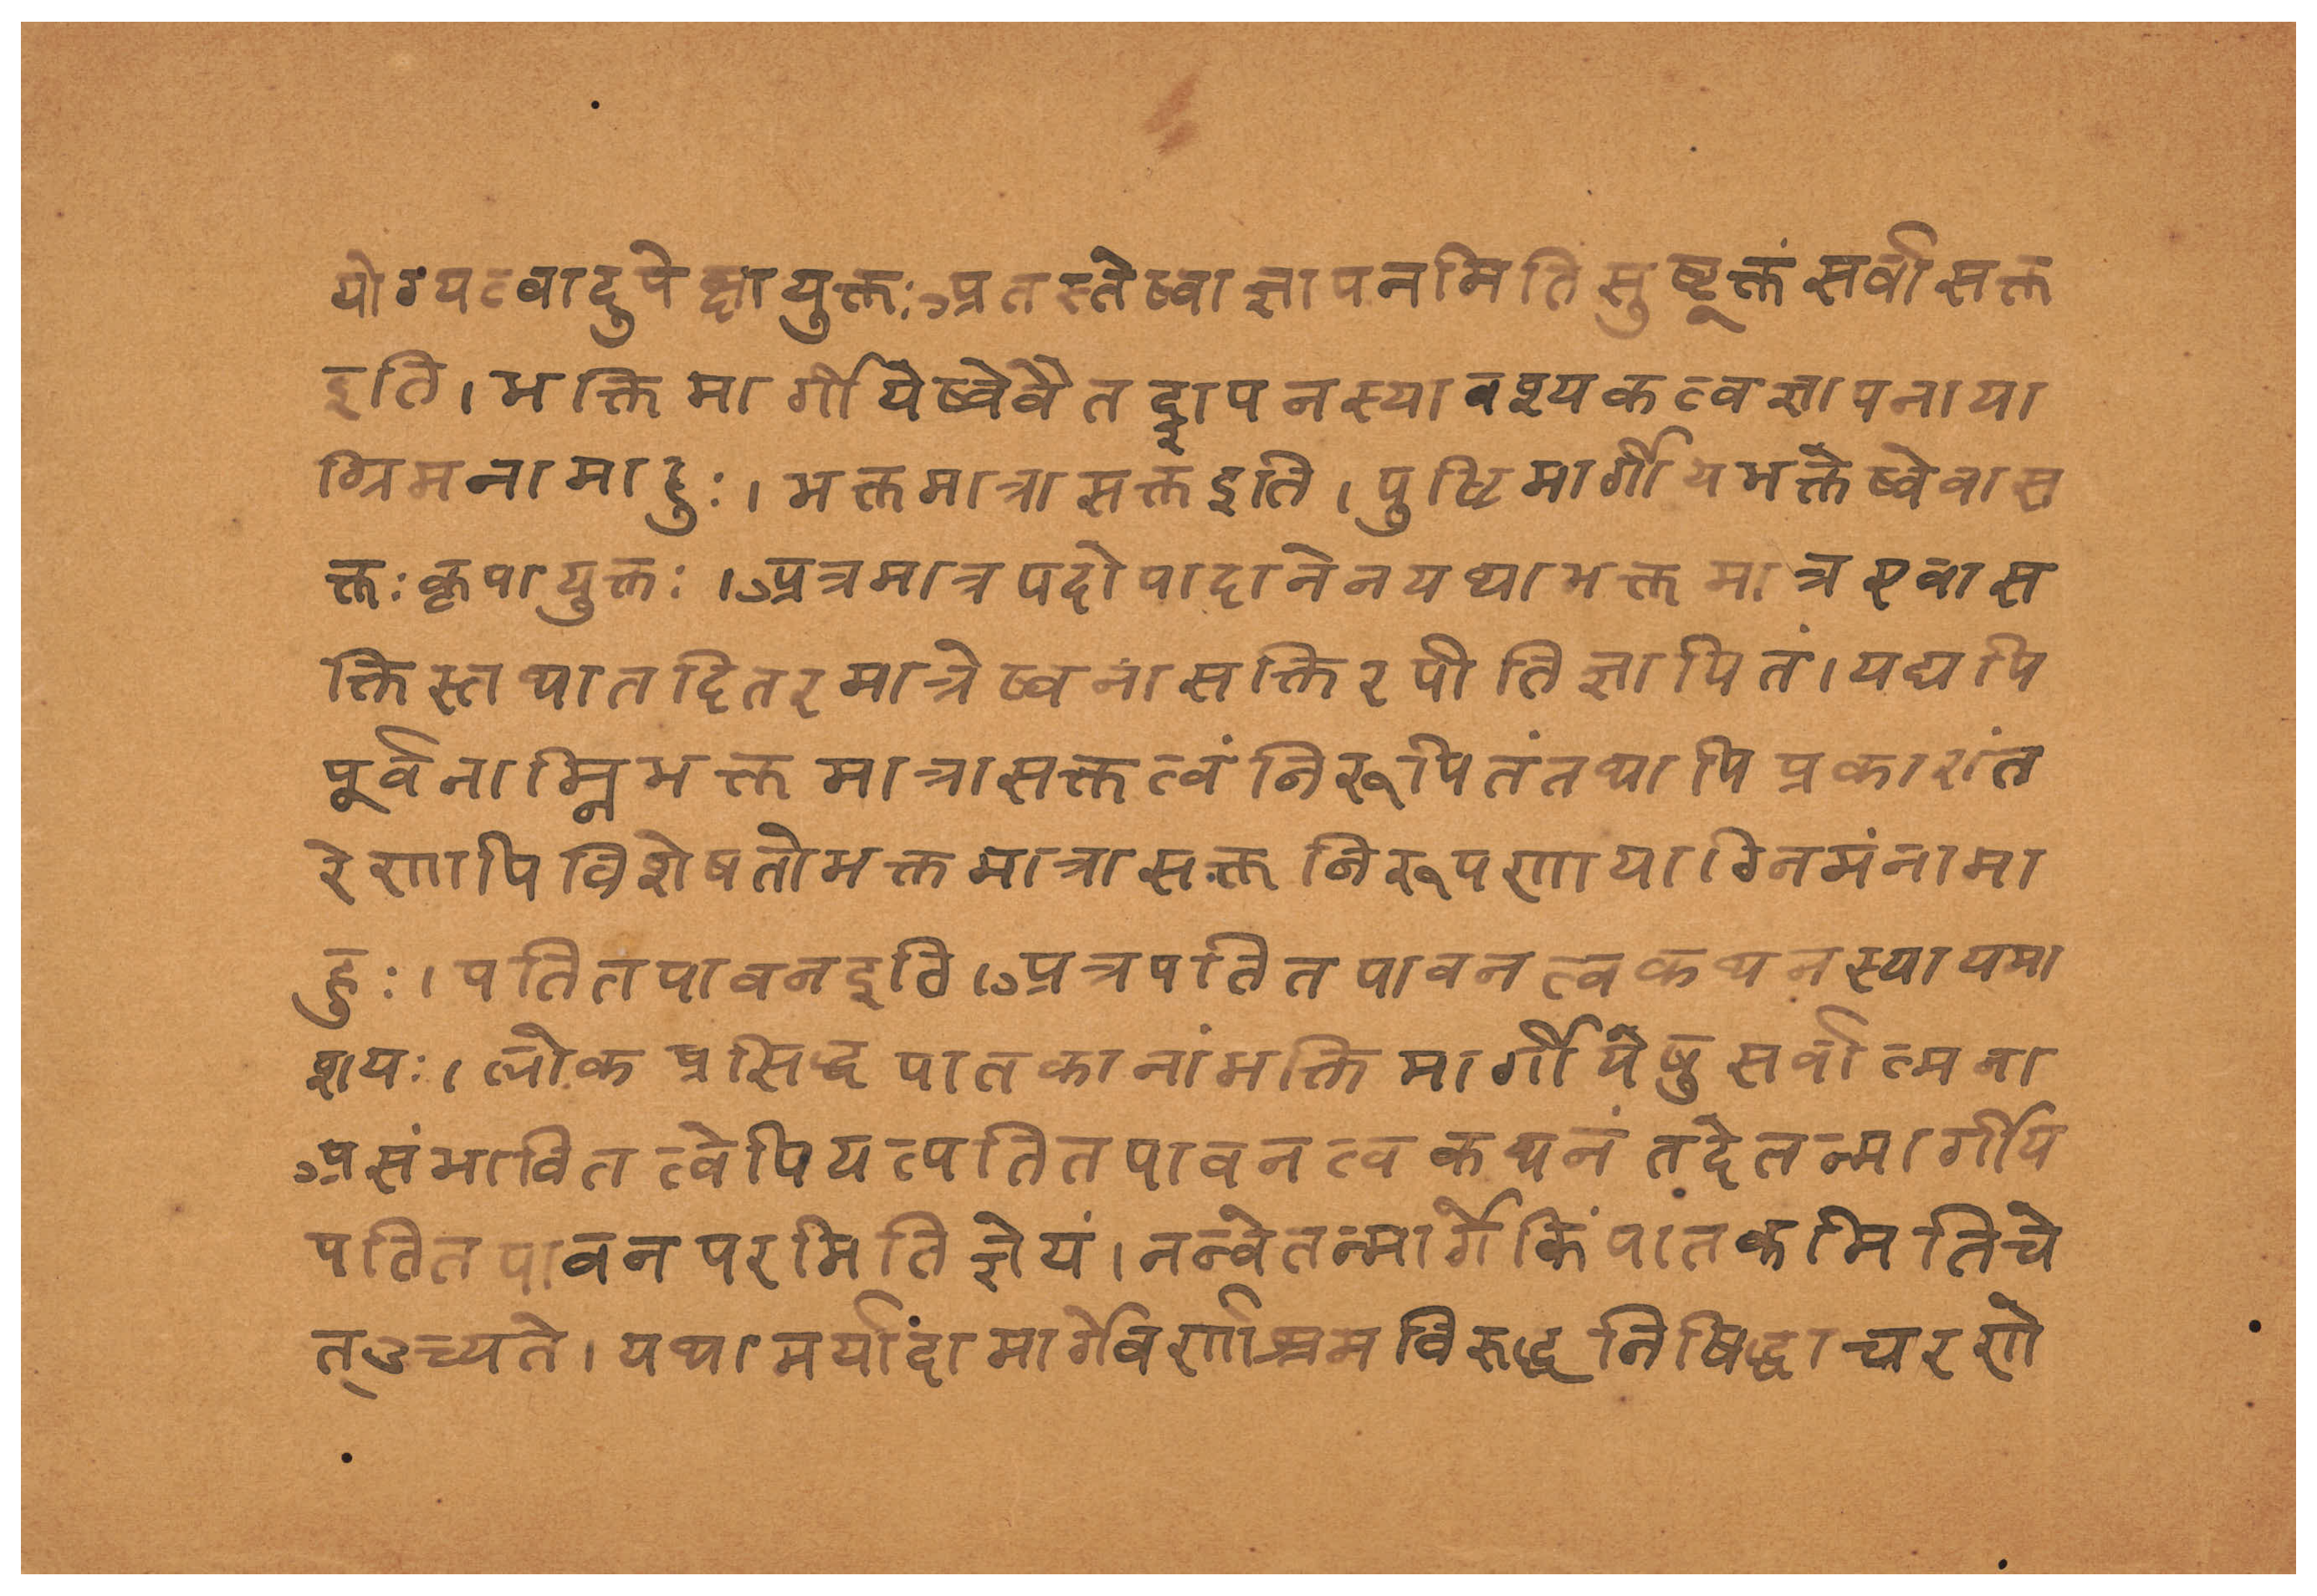 योग्यत्वादुपेक्षायुक्तः अतस्तेष्वाज्ञापनमितिसुष्टूक्तंसर्वासक्त
इति। भक्तिमार्गीयेष्वेवैतद्ज्ञापनस्यावश्यकत्वज्ञापनाया
ग्रिमनामाहुः। भक्तमात्रासक्तइति। पुष्टिमार्गीयभक्तेष्वेवास
क्तः कृपायुक्तः। अत्रमात्रपदोपादानेनयथाभक्तमात्रएवास
क्तिस्तथातदितरमात्रेष्वनासक्तिरपीतिज्ञापितं। यद्यपि
पूर्वनाम्निभक्तमात्रासक्तत्वंनिरूपितंतथापिप्रकारांत
रेणापिविशेषतोभक्तमात्रासक्तनिरूपणायाग्निमंनामा
हुः। पतितपावनइति। अत्रपतितपावनत्वकथनस्यायमा
शयः। लोकप्रसिद्धपातकानांभक्तिमार्गीयेषुसर्वात्मना
असंभावितत्वेपियत्पतितपावनत्वकथनंतदेतन्मार्गीपि
पतितपावनपरमितिज्ञेयं। नन्वेतन्मार्गेकिंपातकमितिचे
त्उच्यते। यथामर्यादामार्गेवर्णाश्रमविरुद्धनिषिद्धाचरणे